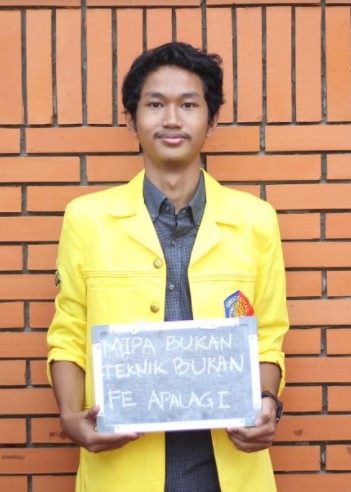 MIPA BUKAN
TEKNIK BUKAN
FE APALAGI